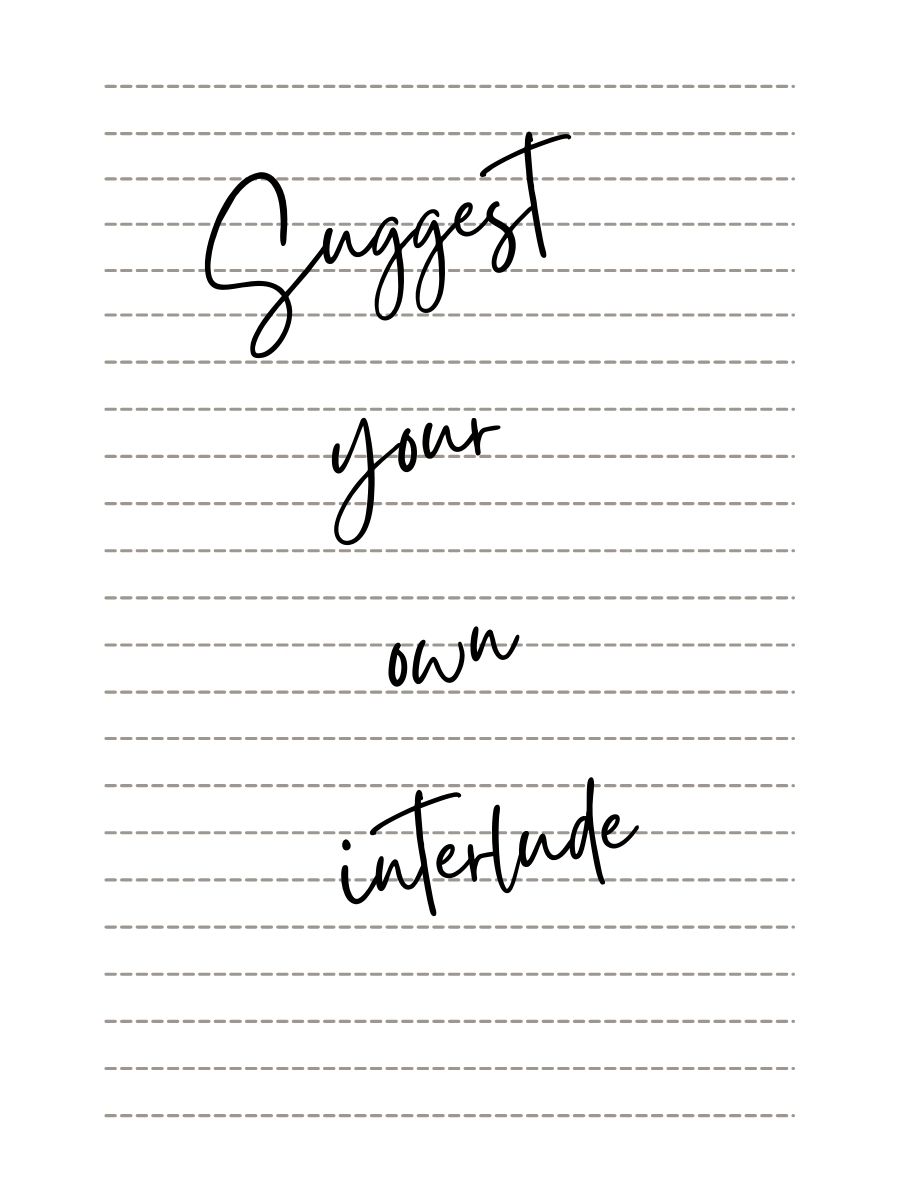 Suggest
your
own
interlude